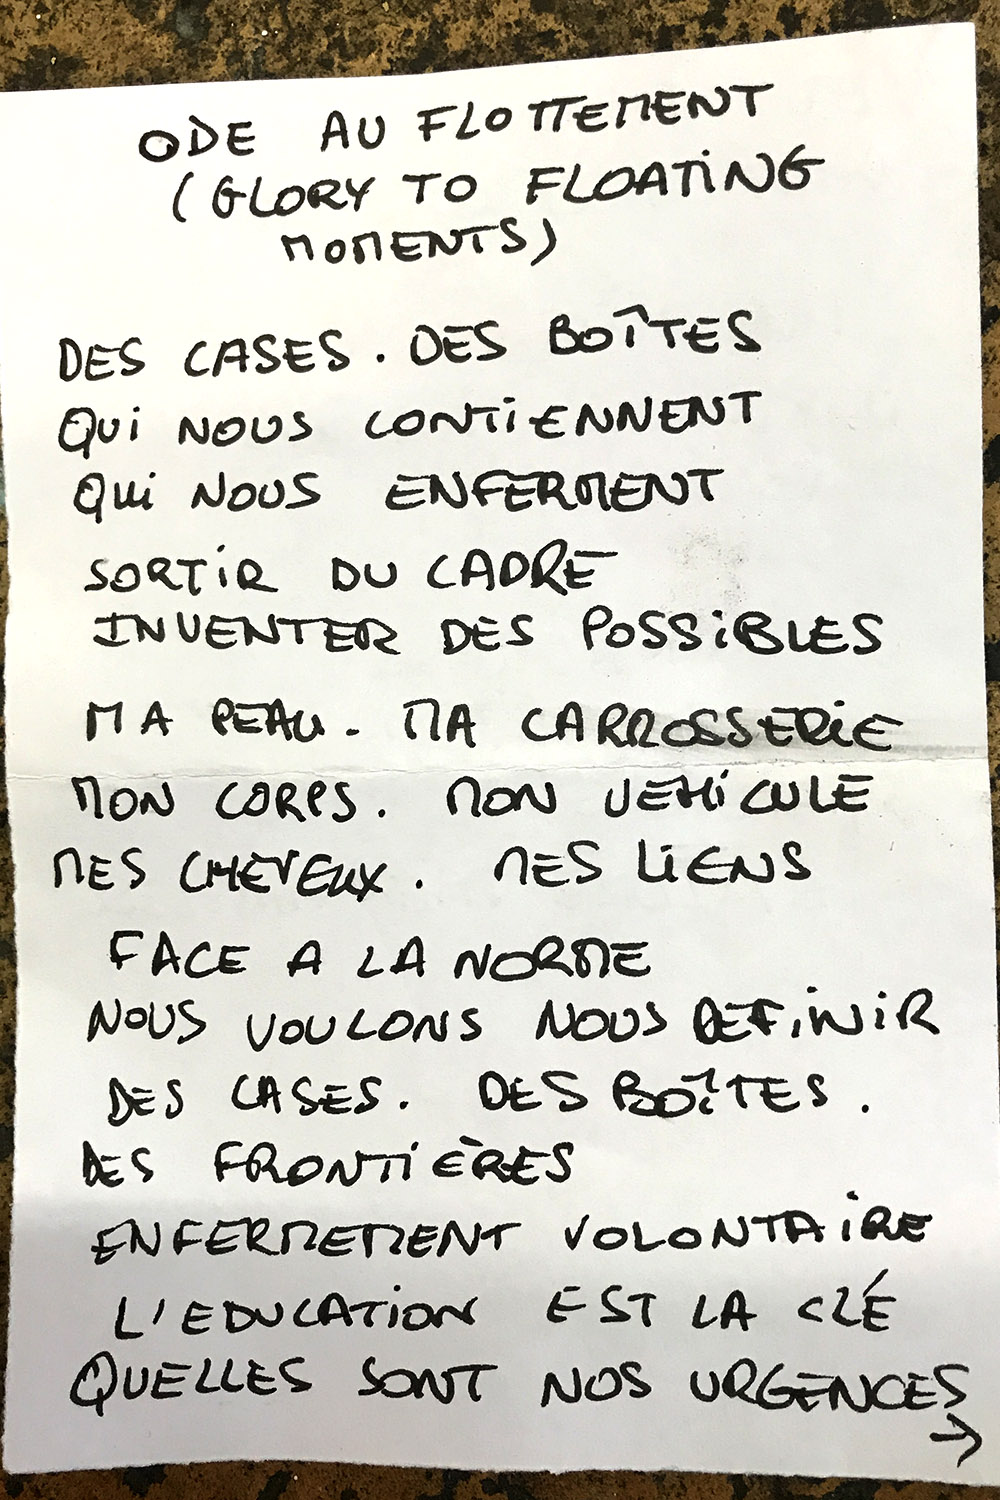 ODE AU FLOTTEMENT
(GLORY TO FLOATING
MOMENTS)
DES CASES. DES BOÎTES
QUI NOUS CONTIENNENT
QUI NOUS ENFERMENT
SORTIR DU CADRE
INVENTER DES POSSIBLES
MA PEAU. MA CARROSSERIE
MON CORPS. MON VEHICULE
MES CHEVEUX. MES LIENS
FACE A LA NORME
NOUS VOULONS NOUS DEFINIR
DES CASES. DES BOÎTES.
DES FRONTIÈRES
ENFERMEMENT VOLONTAIRE
L'EDUCATION EST LA CLÉ
QUELLES SONT NOS URGENCES
→